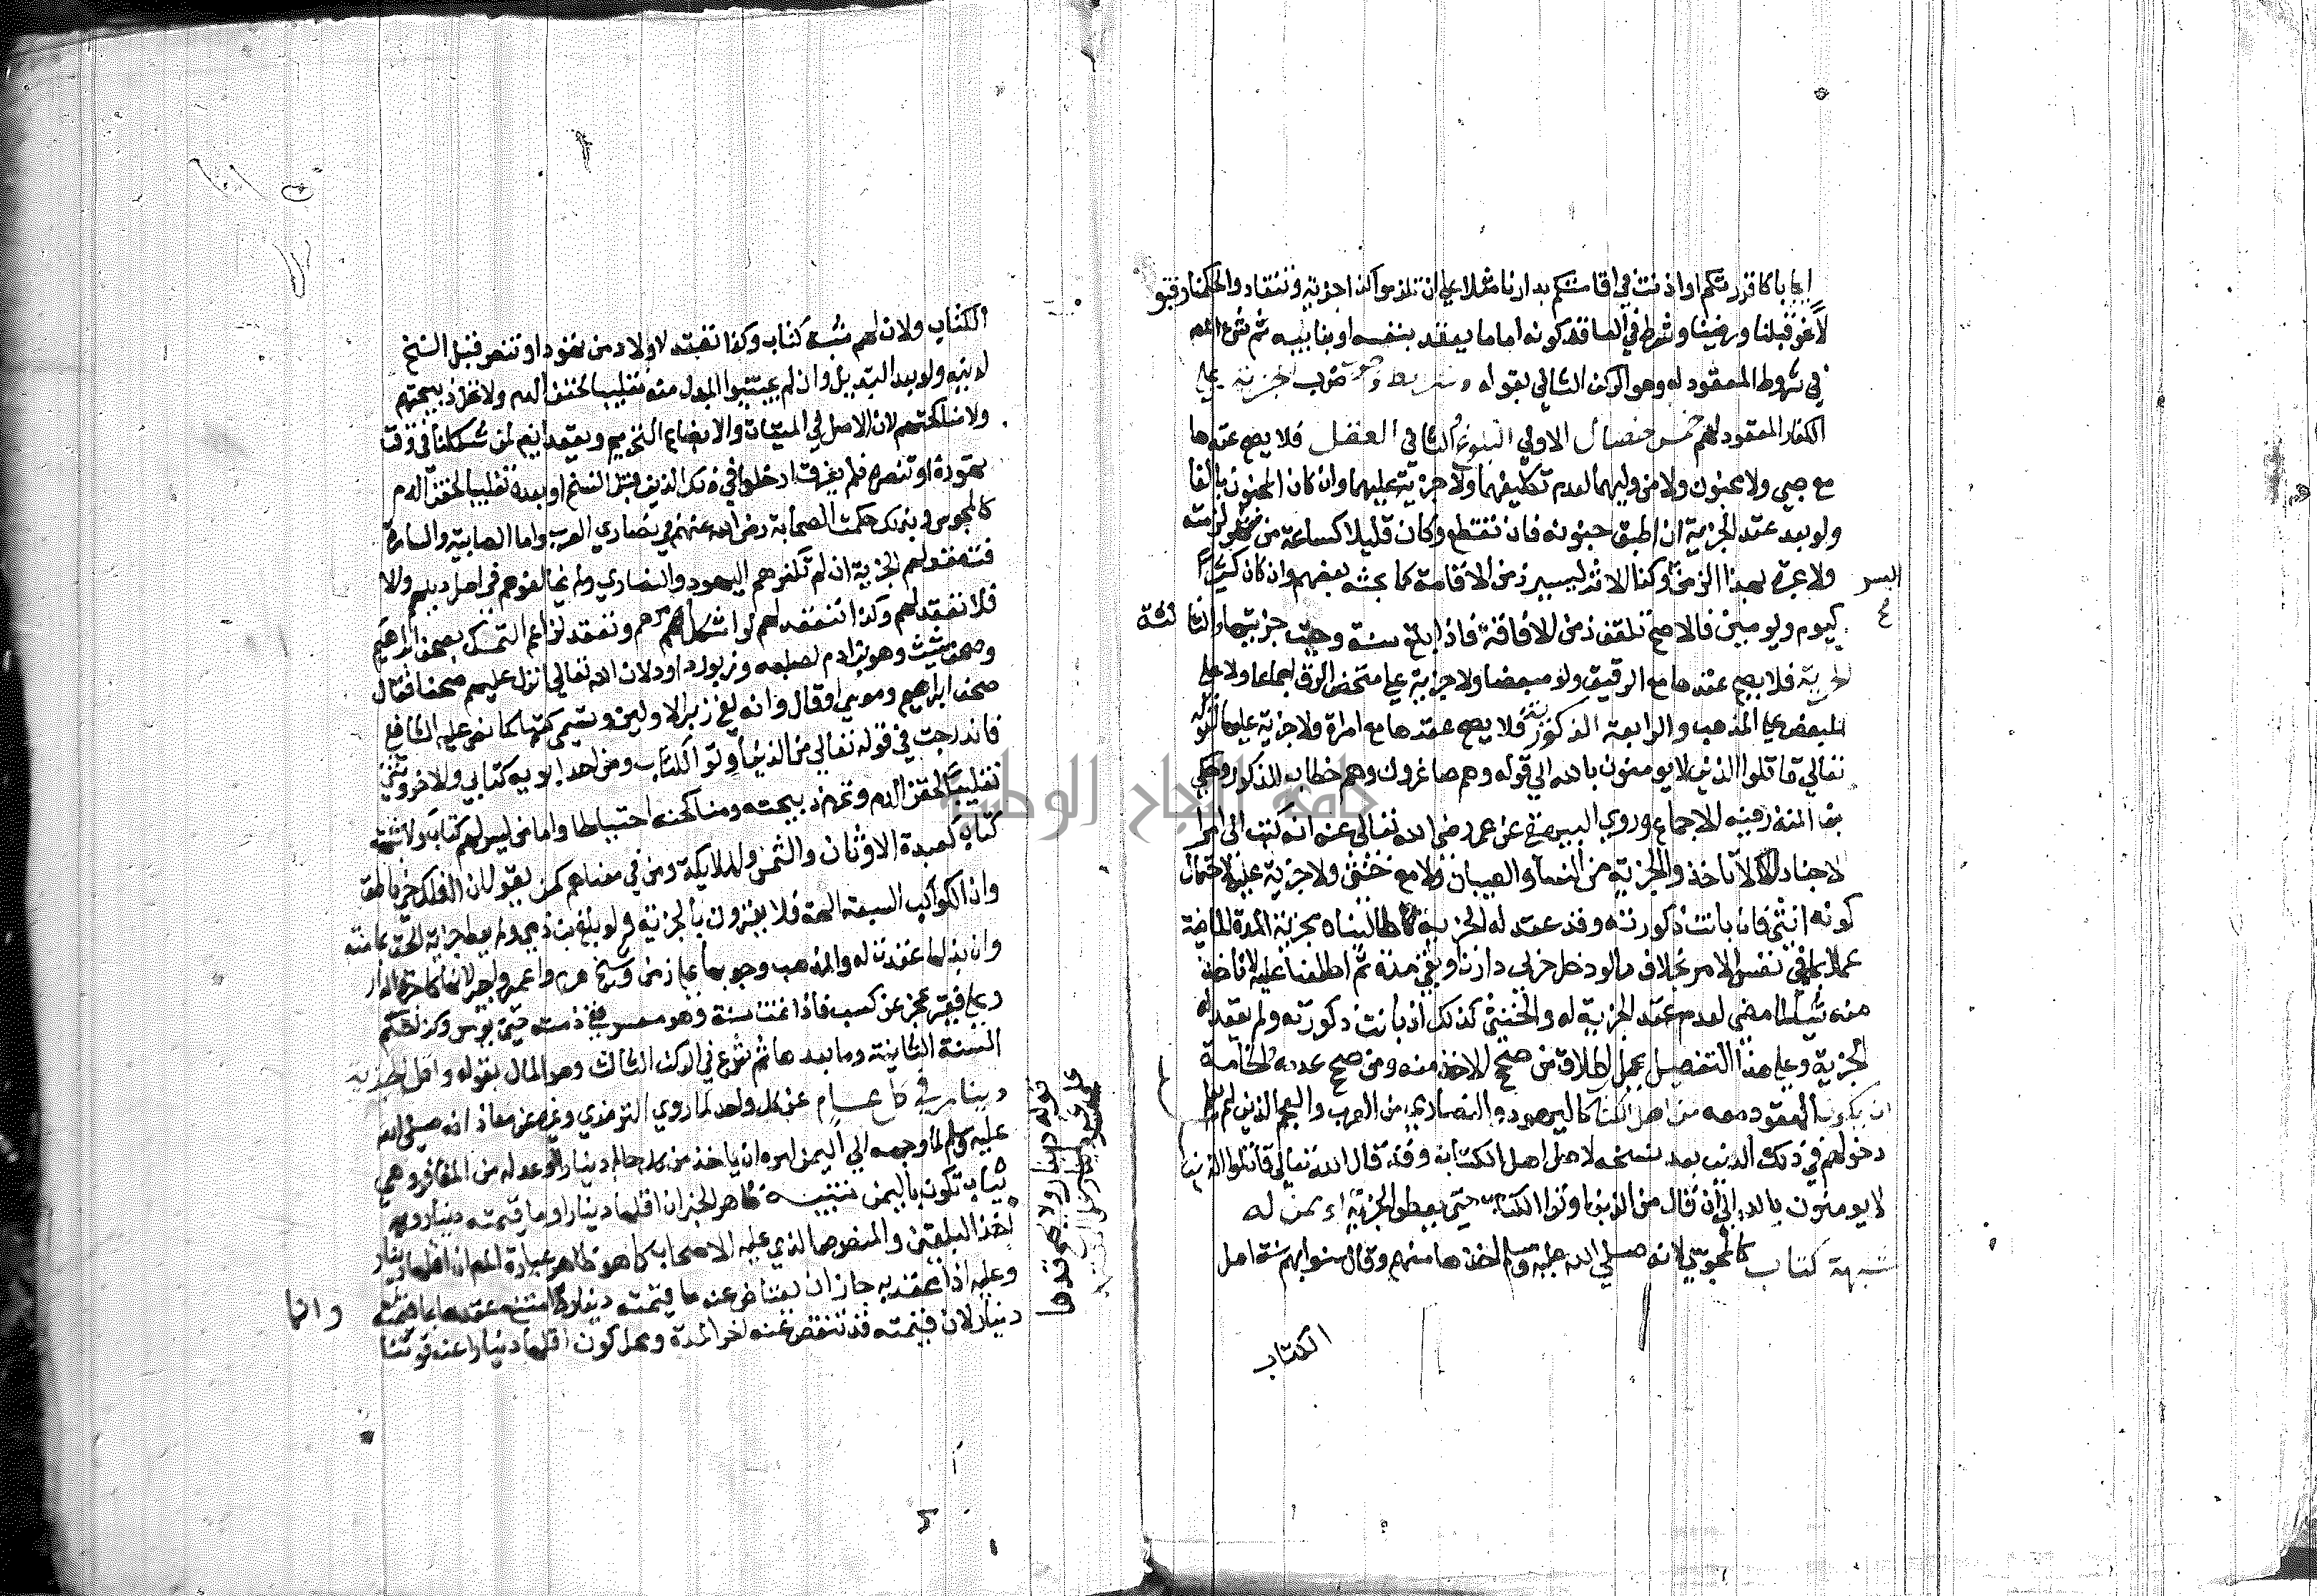 ايجابا كاقررتكم او اذنت في اقامتكم بدارنا مثلا على ان تلتزموا كذا جزية وتنقادوا لحكمنا وقبو
لا نحو قبلنا ورضينا وشرط في العاقد كونه اماما يعقد بنفسه او بنائبه ثم شرع المص
في شروط المعقود له وهو الركن الثاني بقوله وشرايط وجوب ضرب الجزية على
الكفار المعقود لهم خمس خصال الاولى البلوغ والثاني العقل فلا يصح عقدها
مع صبي ولا مجنون ولا من وليهما لعدم تكليفهما ولا جزية عليهما وان كان المجنون بالغا
ولو بعد عقد الجزية ان اطبق جنونه فان تقطع وكان قليلا كساعة من شهر لزمته
ولا عبرة بهذا الزمن وكذا لا اثر ليسير زمن الافاقة كما بحثه بعضهم وان كان كثيرا
كيوم ويومين فالاصح تلفق زمن الافاقة فاذا بلغ سنة وجبت جزيتها والثالثة
الحرية فلا يصح عقدها مع الرقيق ولو مبعضا ولا جزية على متمحض الرق اجماعا ولا على
المبعض على المذهب والرابعة الذكورية فلا يصح عقدها مع امراة ولا جزية عليها لقوله
تعالى قاتلوا الذين لا يومنون بالله الى قوله وهم صاغرون وهم خطاب للذكور وحكى
بن المنذر فيه الاجماع وروى البيهقي عن عمر رضي الله تعالى عنه انه كتب الى امرا
لاجناد ان لا تاخذوا الجزية من النساء والصبيان ولا مع خنثى ولا جزية عليه لاحتمال
كونه انثى فان بانت ذكورته وقد عقد له الجزية طالبناه بجزية المدة الماضية
عملا بما في نفس الامر بخلاف ما لو دخل حربي دارنا وبقي مدة ثم اطلعنا عليه لا ناخذ
منه شيا لما مضى لعدم عقد الجزية له والخنثى كذلك اذ بانت ذكورته ولم يعقد له
الجزية وعلى هذا التفصيل يحمل اطلاق من صحح الاخذ منه ومن صحح عدمه والخامسة
ان يكون المعقود معه من اهل الكتاب كاليهود والنصارى من العرب والعجم الذين لم يعلم
دخولهم في ذلك الدين بعد نسخه لاصل اهل الكتاب وقد قال الله تعالى قاتلوا الذين
لا يومنون بالله الى ان قال من الذين اوتوا الكتاب حتى يعطوا الجزية او ممن له
شبهة كتاب كالمجوسي لانه صلى الله عليه وسلم اخذها منهم وقال سنوا بهم سنة اهل
الكتاب
الكتاب ولان لهم شبهة كتاب وكذا تعقد لاولاد من تهود او تنصر قبل النسخ
لدينه ولو بعد التبديل وان لم يجتنبوا المبدل منه تغليبا لحقن الدم ولا تحل ذبيحتهم
ولا مناكحتهم لان الاصل في الميتات والابضاع التحريم ويعقد ايضا لمن شككنا في وقت
تهوده او تنصره فلم يعرف ادخلوا في ذلك الدين قبل النسخ او بعده تغليبا لحقن الدم
كالمجوس وبذلك حكمت الصحابة رضي الله عنهم في نصارى العرب واما الصابية والسامرة
فتعقد لهم الجزية ان لم تكفرهم اليهود والنصارى ولم يخالفوهم في اصل دينهم والا
فلا تعقد لهم وكذا تعقد لهم لو اشكل امرهم وتعقد لزاعم التمسك بصحف ابراهيم
وصحف شيث وهو ابن ادم لصلبه وزبور داود لان الله تعالى انزل عليهم صحفا فقال
صحف ابراهيم وموسى وقال وانه لفي زبر الاولين وتسمى كتبا كما نص عليه الشافعي
فاندرجت في قوله تعالى من الذين اوتوا الكتاب ومن احد ابويه كتابي والاخر وثني
تغليبا لحقن الدم وتحرم ذبيحته ومناكحته احتياطا واما من ليس لهم كتاب ولا شبهة
كتاب كعبدة الاوثان والشمس والملايكة ومن في معناهم كمن يقول ان الفلك حي ناطق
وان الكواكب السبعة الهة فلا يقرون بالجزية ولو بلغ بن ذمي ولم يعط جزية الحق بمامنه
وان بذلها عقدت له والمذهب وجوبها على زمن وشيخ هرم واعمى واجير لانها كاجرة الدار
وعلى فقير عجز عن كسب فاذا تمت سنة وهو معسر ففي ذمته حتى يوسر وكذا حكم
السنة الثانية وما بعدها ثم شرع في الركن الثالث وهو المال بقوله واقل الجزية
دينار في كل عام عن كل واحد لما روى الترمذي وغيره عن معاذ انه صلى الله
عليه وسلم لما وجهه الى اليمن امره ان ياخذ من كل حالم دينارا او عدله من المعافر وهي
ثياب تكون باليمن تنبيه ظاهر الخبر ان اقلها دينار او ما قيمته دينار وبه
اخذ البلقيني والمنصوص الذي عليه الاصحاب كما هو ظاهر عبارة المص ان اقلها دينار
وعليه اذا عقد به جاز ان يعتاض عنه ما قيمته دينار وانما امتنع عقدها بما قيمته
دينار لان قيمته قد تنقص عنه اخر المدة ومحل كون اقلها دينارا عند قوتنا
وانما